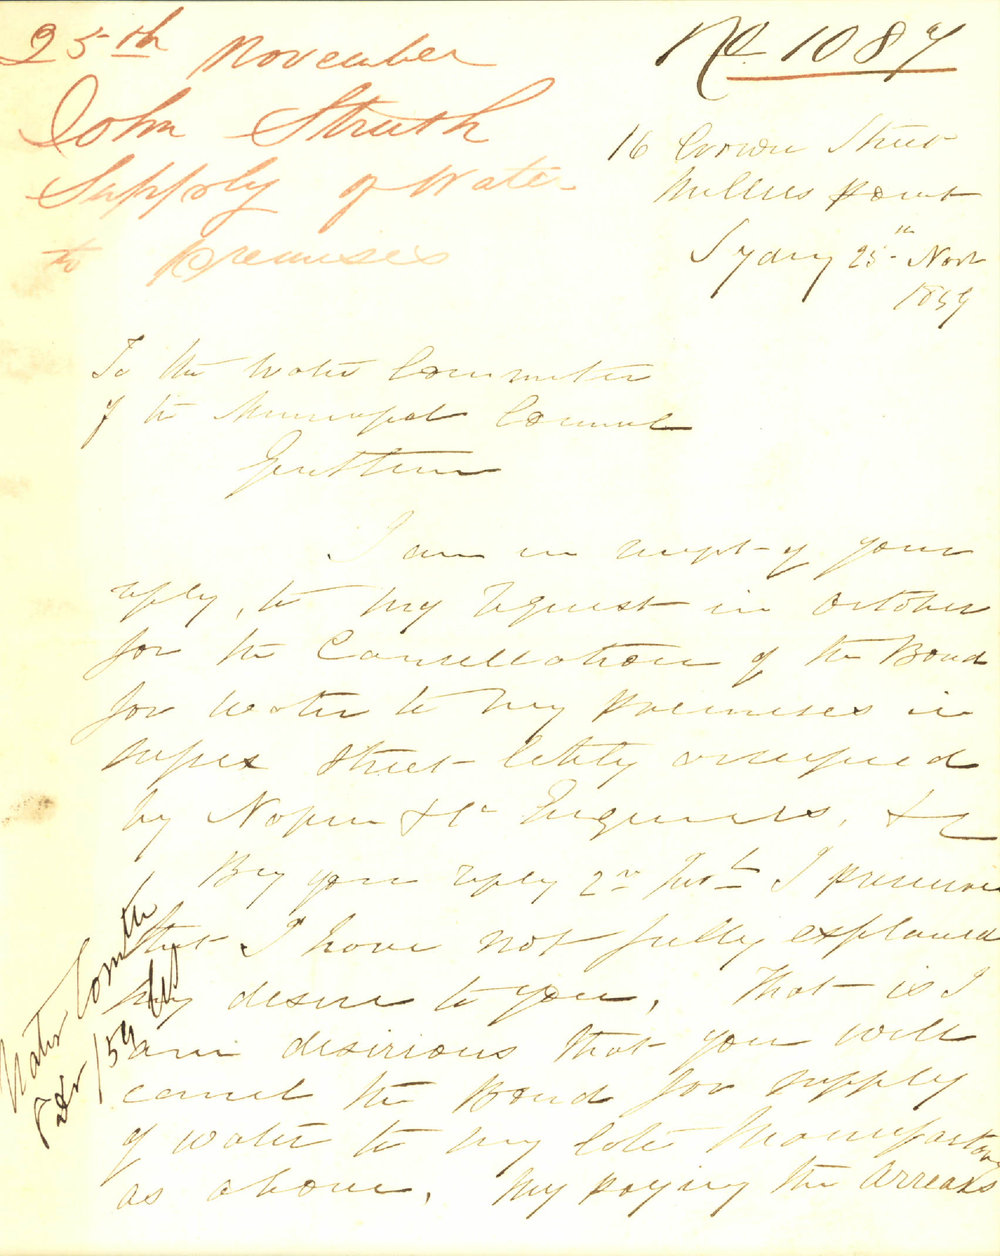 25th November
John Struth
Supply of Water
to premises
No 1087
16 Crown Street
Millers Point
Sydney 25th Novr
1859
To the Water Committee
of the Municipal Council
Gentlemen
I am in receipt of your
reply, to my request in October
for the Cancellation of the Bond
for water to my premises in
Sussex Street lately occupied
by Napier & Co Engineers, &c
By your reply 2nd Inst I presume
that I have not fully explained
my desire to you, That is I
am desirious that you will
cancel the Bond for supply
of water to my late Manufactory
as above, My paying the Arrears
Water Comtte
/59